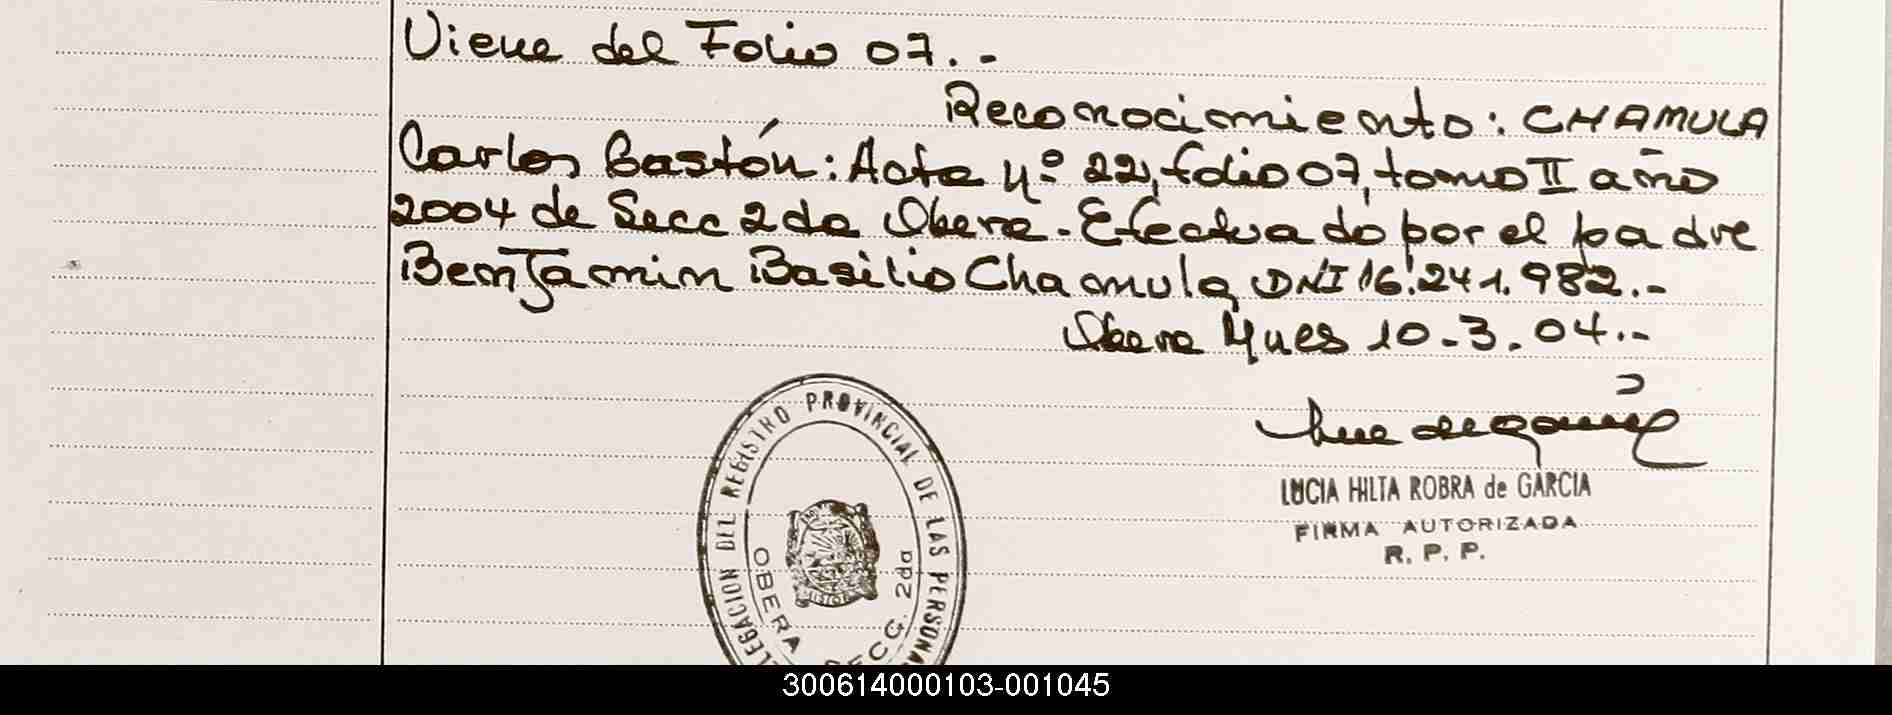 Viene del Folio 07.-
Reconocimiento: CHAMULA
Carlos Gastón: Acta Nº 22, folio 07, tomo II año
2004 de Secc 2da Obera.- Efectuado por el padre
Benjamin Basilio Chamula DNI 16.241.982.-
Obera Mnes 10.3.04.-
LUCIA HILTA ROBRA de GARCIA
FIRMA AUTORIZADA
R. P. P.
DEL REGISTRO PROVINCIAL DE LAS
OBERA
2da
300614000103-001045